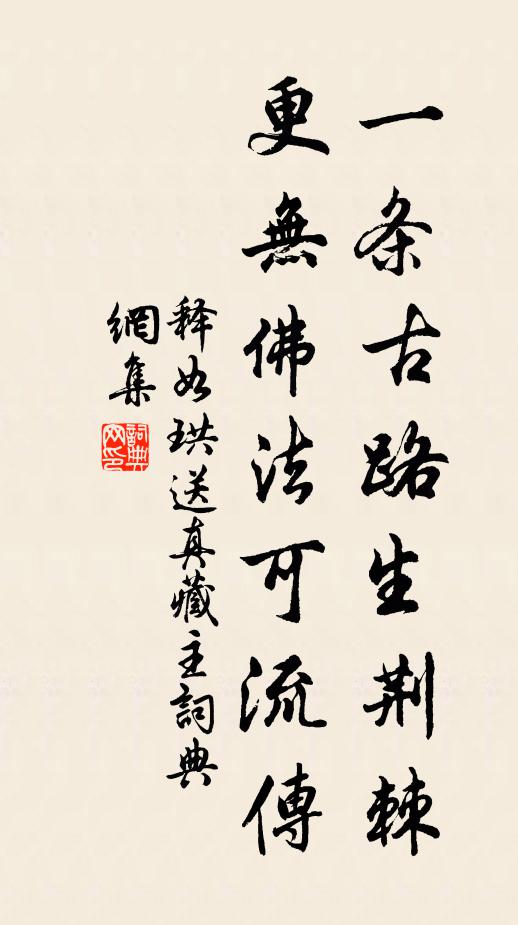 一条古路生荆棘
更無佛法可流傳
释如珙送真藏主詞典
網集
詞典
网印